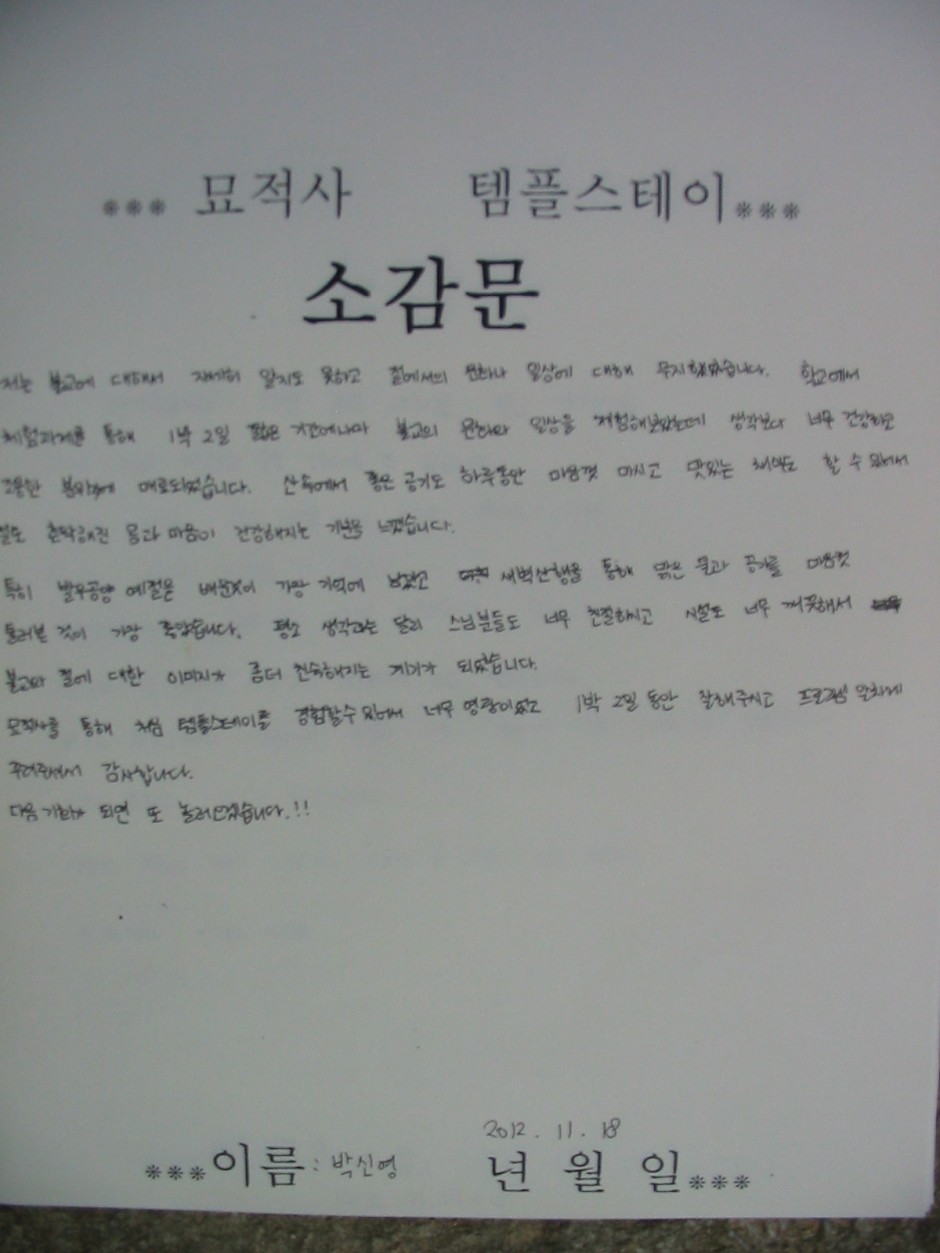 *** 묘적사 템플스테이 ***
소감문
저는 불교에 대해서 자세히 알지도 못하고 절에서의 문화나 일상에 대해 무지했었습니다. 학교에서
체험과제를 통해 1박 2일 짧은 시간에나마 불교의 문화와 일상을 체험해보았는데 생각보다 너무 건강하고
고요한 분위기에 매료되었습니다. 산속에서 좋은 공기도 하루동안 마음껏 마시고 맛있는 채식도 할 수 있어서
몸과 마음이 건강해지는 기분을 느꼈습니다.
특히 발우공양 예절을 배운것이 가장 기억에 남았고 새벽산행을 통해 맑은 물과 공기를 마음껏
둘러본 것이 가장 좋았습니다. 평소 생각과는 달리 스님분들도 너무 친절하시고 시설도 너무 깨끗해서
불교와 절에 대한 이미지가 좀더 친숙해지는 계기가 되었습니다.
묘적사를 통해 처음 템플스테이를 경험할수 있어서 너무 영광이었고 1박 2일 동안 잘해주시고 프로그램 알차게
꾸려주셔서 감사합니다.
다음 기회가 되면 또 놀러오겠습니다.!!
2012. 11. 18
***이름 : 박신영 년 월 일***